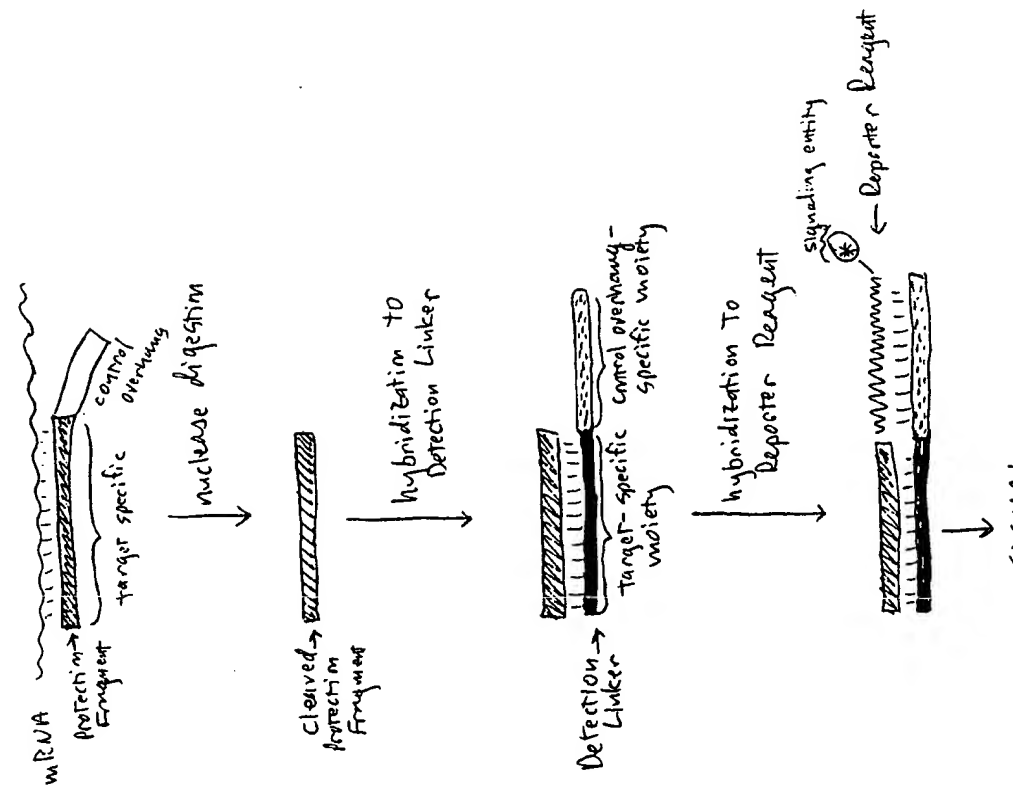 mRNA
Protection
Fragment
target specific
control
overhang
nuclease digestion
Cleaved
Protection
Fragment
hybridization to
Detection Linker
Detection
Linker
target-specific
moiety
control overhang-
specific moiety
hybridization to
Reporter Reagent
signaling entity
*
Reporter Reagent